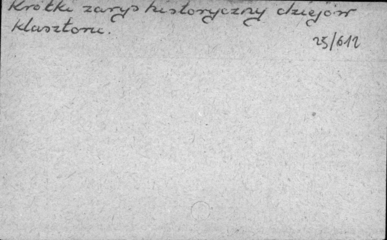 Krótki zarys historyczny dziejów
klasztoru.
23/612